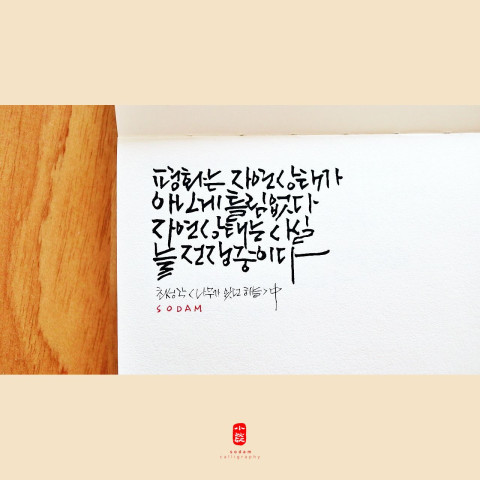 평화는 자연상태가
아닌게 틀림없다
자연상태는 사실
늘 전쟁중이다
최성각 <나무가 있던 하늘>中
SODAM
sodam
calligraphy